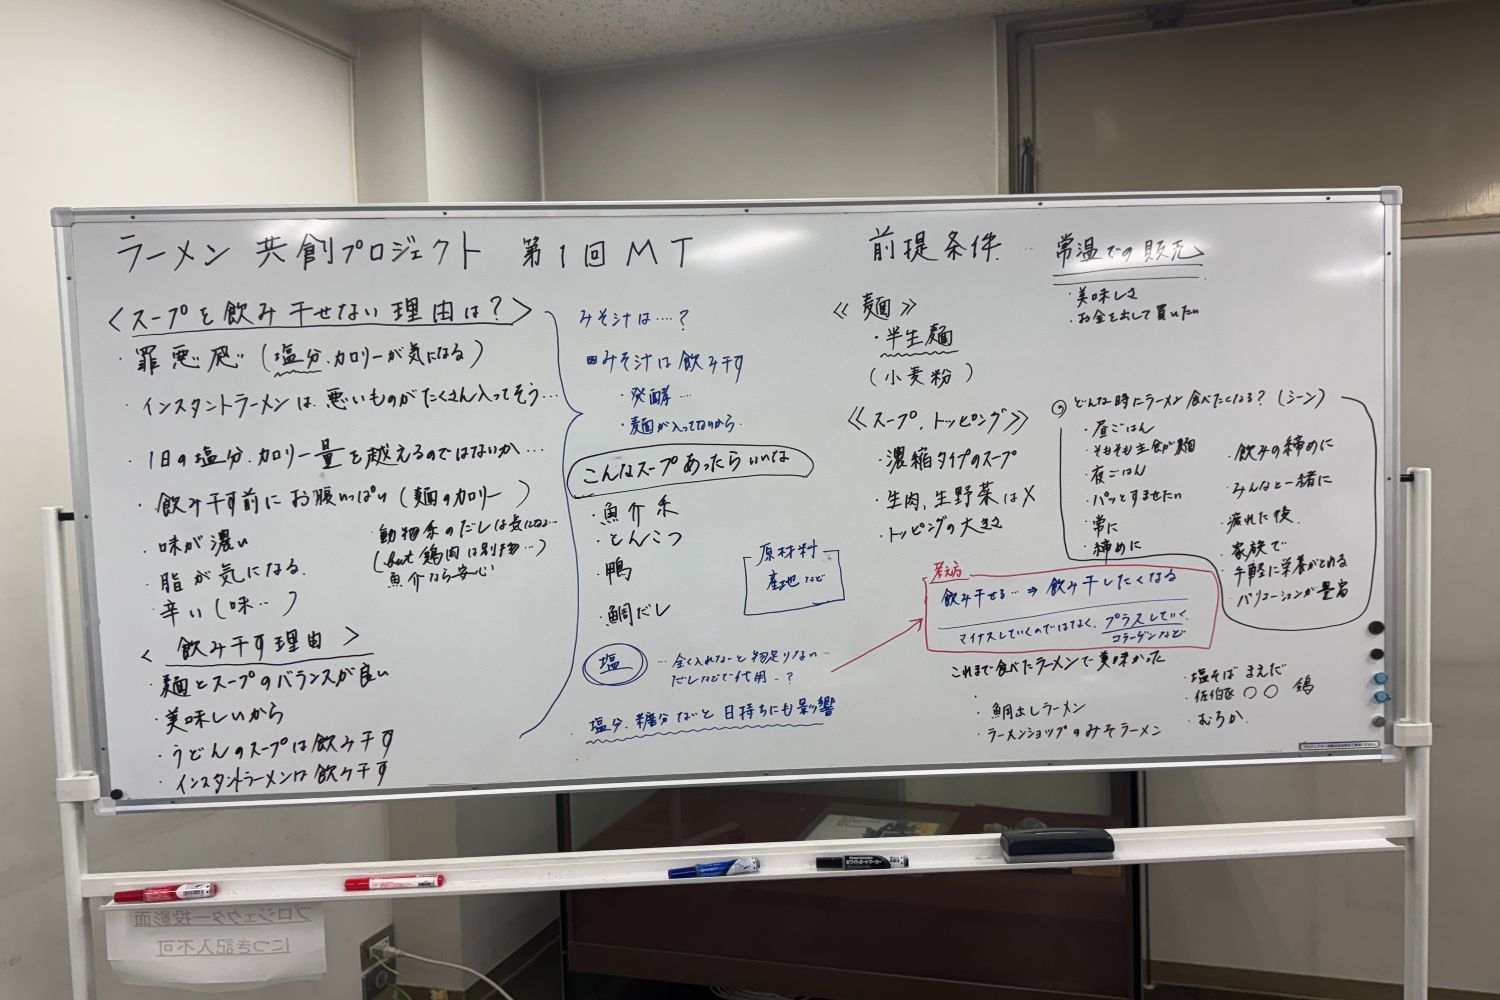 ラーメン 共創プロジェクト 第1回 MT
<スープを飲み干せない理由は?>
・罪悪感 (塩分、カロリーが気になる)
・インスタントラーメンは、悪いものがたくさん入ってそう…
・1日の塩分、カロリー量を越えるのではないか…
・飲み干す前にお腹いっぱい (麺のカロリー)
・味が濃い
・脂が気になる
・辛い (味‥)
・動物系のだしは気になる…
(but 鶏肉は別物…)
魚介なら安心
<飲み干す理由>
・麺とスープのバランスが良い
・美味しいから
・うどんのスープは飲み干す
・インスタントラーメンは飲み干す
みそ汁は…?
みそ汁は飲み干す
・発酵…
・麺が入ってないから
こんなスープあったらいいな
・魚介系
・とんこつ
・鴨
・鯛だし
原材料
産地など
塩
…全く入れないと物足りない…
だしなどで代用…?
・塩分、糖分ないと日持ちにも影響
前提条件…常温での販売
・美味しさ
・お金を出して買いたい
≪麺≫
・半生麺
(小麦粉)
≪スープ、トッピング≫
・濃縮タイプのスープ
・生肉、生野菜は×
・トッピングの大きさ
どんな時にラーメン食べたくなる? (シーン)
・昼ごはん
・そもそも主食が麺
・夜ごはん
・パッとすませたい
・常に
・締めに
・飲みの締めに
・みんなと一緒に
・疲れた後
・家族で
・手軽に栄養がとれる
・バリエーションが豊富
考え方
飲み干せる…⇒飲み干したくなる
マイナスしていくのではなく、プラスしていく
コラーゲンなど
これまで食べたラーメンで美味かった
・鯛出しラーメン
・ラーメンショップのみそラーメン
・塩そば まえだ
・佐伯区 〇〇 鶏
・むろか
プロジェクター投影面
につき記入不可